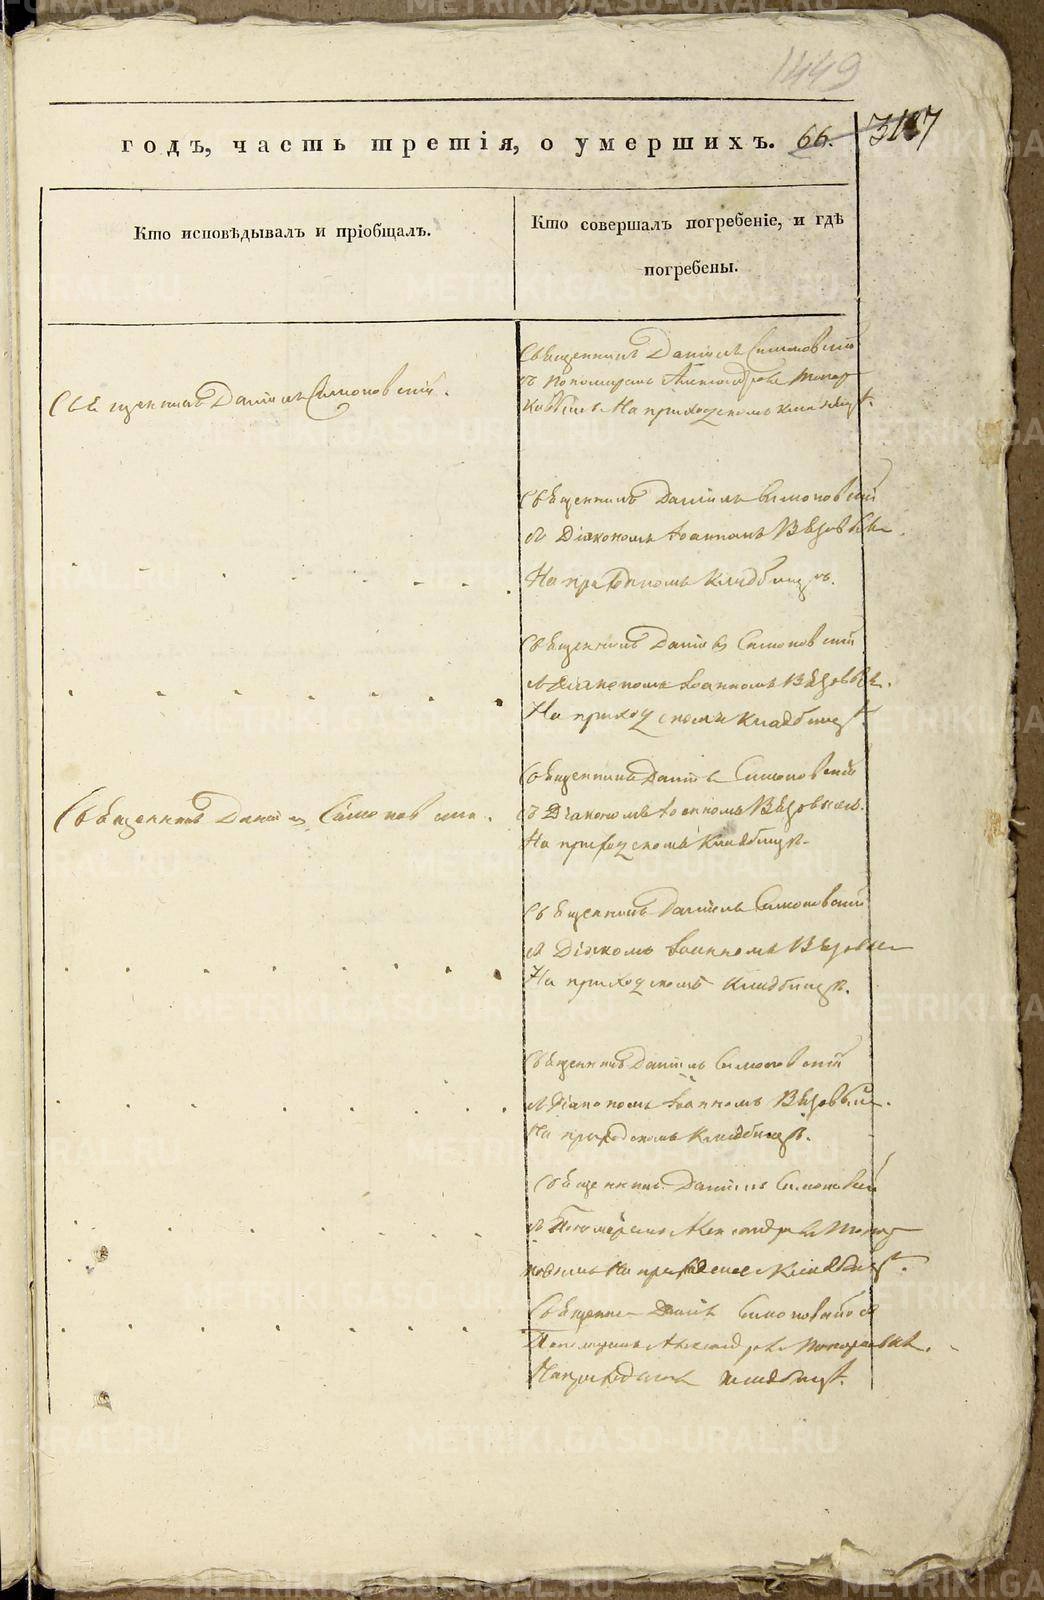 1449
годъ, часть третія, о умершихъ. 66. 3117
Кто исповѣдывалъ и пріобщалъ.
Кто совершалъ погребеніе, и гдѣ
погребены.
Священникъ Даніилъ Симоновскій
съ пономаремъ Александромъ
На приходскомъ кладбищѣ.
Священникъ Даніилъ Симоновскій.
Священникъ Даніилъ Симоновскій
съ Діакономъ Іоанномъ
На приходскомъ Кладбищѣ.
Священникъ Даніилъ Симоновскій
съ Діакономъ Іоанномъ
На приходскомъ Кладбищѣ.
Священникъ Даніилъ Симоновскій
съ Діакономъ Іоанномъ
На приходскомъ Кладбищѣ.
Священникъ Даніилъ Симоновскій.
Священникъ Даніилъ Симоновскій
съ Діякомъ Іоанномъ
На приходскомъ Кладбищѣ.
Священникъ Даніилъ Симоновскій
съ Діакономъ Іоанномъ
На приходскомъ Кладбищѣ.
Священникъ Даніилъ Симоновскій
съ Пономаремъ Александромъ
На приходскомъ Кладбищѣ.
Священникъ Даніилъ Симоновскій съ
Пономаремъ Александромъ
На приходскомъ кладбищѣ.
METRIKI.GASO-URAL.RU